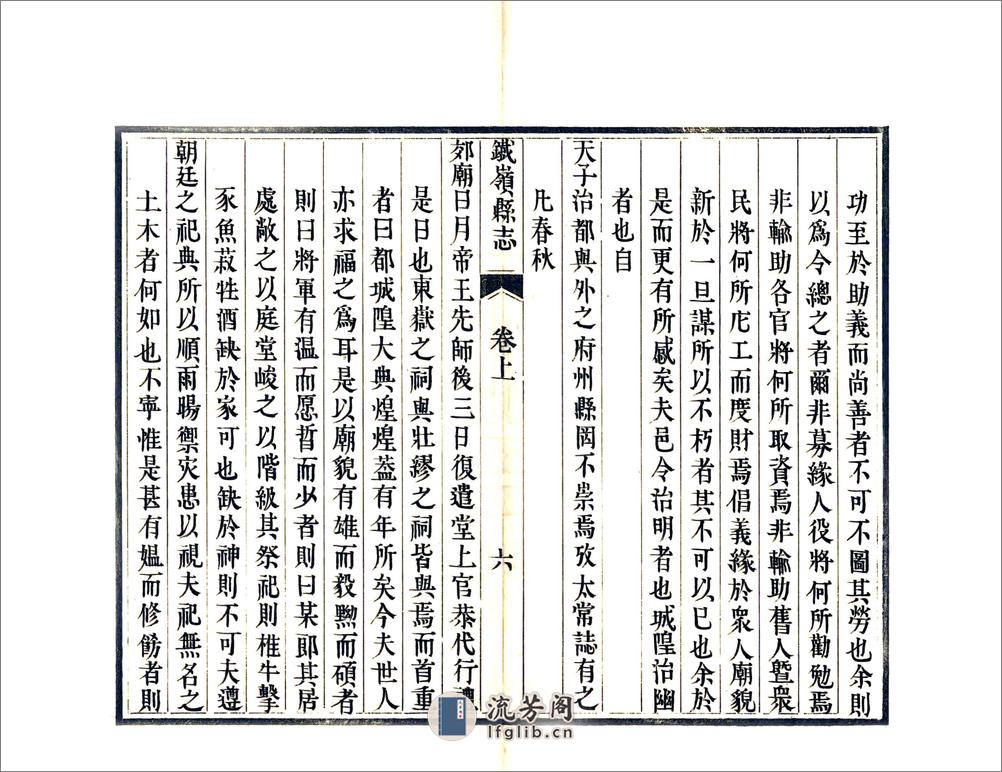 功至於助義而尚善者不可不圖其勞也余則
以爲令總之者爾非募緣人役將何所勸勉焉
非輸助各官將何所取資焉非輸助舊人暨衆
民將何所庀工而度財焉倡義緣於衆人廟貌
新於一旦謀所以不朽者其不可以已也余於
是而更有所感矣夫邑令治明者也城隍治幽
者也自
天子治都與外之府州縣罔不祟焉攷太常誌有之
凡春秋
鐵嶺縣志 卷上 六
郊廟日月帝王先師後三日復遣堂上官恭代行禮
是日也東嶽之祠與壯繆之祠皆與焉而首重
者曰都城隍大典煌煌葢有年所矣今夫世人
亦求福之爲耳是以廟貌有雄而毅黝而碩者
則曰將軍有温而愿晳而少者則曰某郎其居
處敞之以庭堂峻之以階級其祭祀則椎牛擊
豕魚菽牲酒缺於家可也缺於神則不可夫遵
朝廷之祀典所以順雨暘禦灾患以視夫祀無名之
土木者何如也不寧惟是甚有媪而修餙者則
流芳阁
lfglib.cn